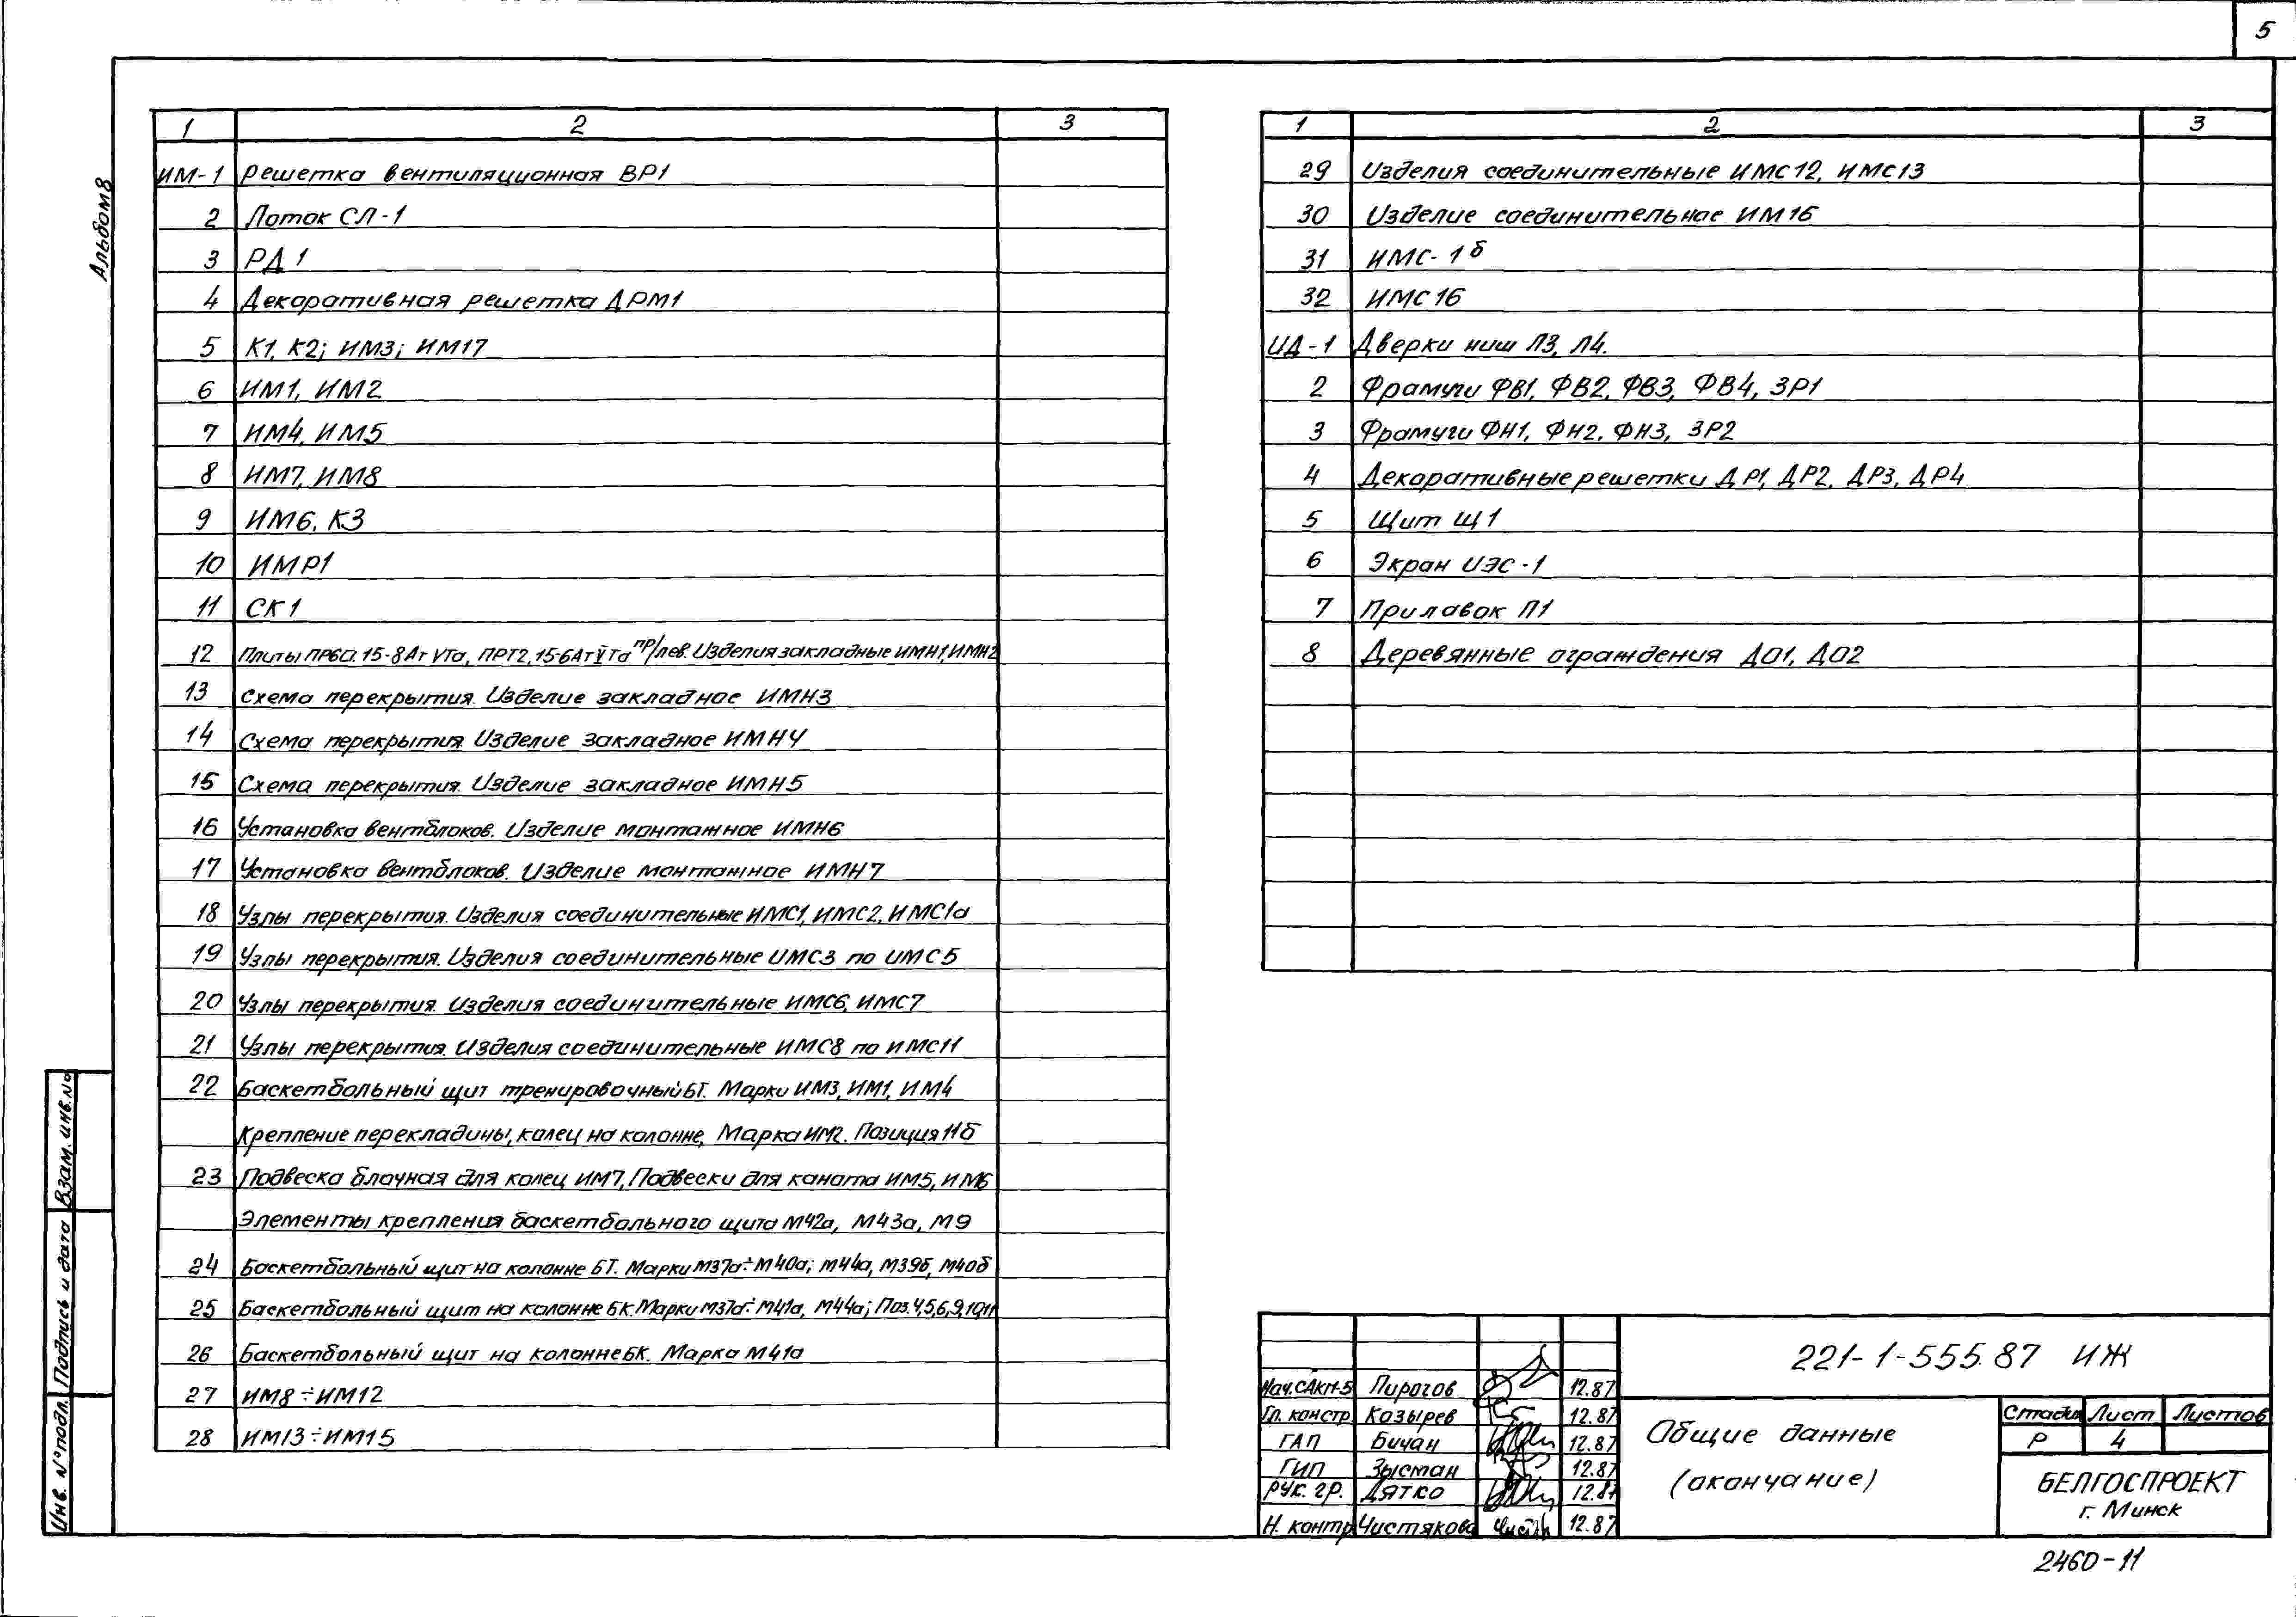 5
Альбом 8
1 2 3
ИМ-1 Решетка вентиляционная ВР1
2 Лоток СЛ-1
3 РД 1
4 Декоративная решетка ДРМ1
5 К1, К2; ИМ3; ИМ17
6 ИМ1, ИМ2
7 ИМ4, ИМ5
8 ИМ7, ИМ8
9 ИМ6, К3
10 ИМР1
11 СК 1
12 Плиты ПР60.15-8АтVТа, ПРТ2,15-6АтVТа пр/лев. Изделия закладные ИМН1, ИМН2
13 Схема перекрытия. Изделие закладное ИМН3
14 Схема перекрытия. Изделие закладное ИМН4
15 Схема перекрытия. Изделие закладное ИМН5
16 Установка вентблоков. Изделие монтажное ИМН6
17 Установка вентблоков. Изделие монтажное ИМН7
18 Узлы перекрытия. Изделия соединительные ИМС1, ИМС2, ИМС1а
19 Узлы перекрытия. Изделия соединительные ИМС3 по ИМС5
20 Узлы перекрытия. Изделия соединительные ИМС6, ИМС7
21 Узлы перекрытия. Изделия соединительные ИМС8 по ИМС11
22 Баскетбольный щит тренировочный БТ. Марки ИМ3, ИМ1, ИМ4
Крепление перекладины, колец на колонне, Марка ИМ2. Позиция 11б
23 Подвеска блочная для колец ИМ7, Подвески для каната ИМ5, ИМ6
Элементы крепления баскетбольного щита М42а, М43а, М9
24 Баскетбольный щит на колонне БТ. Марки М37а÷М40а; М44а, М39б, М40б
25 Баскетбольный щит на колонне БК. Марки М37а÷М41а, М44а; Поз. 4,5,6,9,10,11
26 Баскетбольный щит на колонне БК. Марка М41а
27 ИМ8÷ИМ12
28 ИМ13÷ИМ15
1 2 3
29 Изделия соединительные ИМС12, ИМС13
30 Изделие соединительное ИМ16
31 ИМС-1б
32 ИМС16
ИД-1 Дверки ниш Л3, Л4.
2 Фрамуги ФВ1, ФВ2, ФВ3, ФВ4, ЗР1
3 Фрамуги ФН1, ФН2, ФН3, ЗР2
4 Декоративные решетки ДР1, ДР2, ДР3, ДР4
5 Щит Щ1
6 Экран ИЭС-1
7 Прилавок П1
8 Деревянные ограждения ДО1, ДО2
Инв. № подл. Подпись и дата Взам. инв. №
221-1-555.87 ИЖ
Нач.САКМ-5 Пирогов 12.87
Гл. констр. Козырев 12.87
ГАП Бичан 12.87
ГИП Зысман 12.87
Рук. гр. Дятко 12.87
Н. контр Чистякова 12.87
Общие данные
(окончание)
Стадия Лист Листов
Р 4
БЕЛГОСПРОЕКТ
г. Минск
2460-11